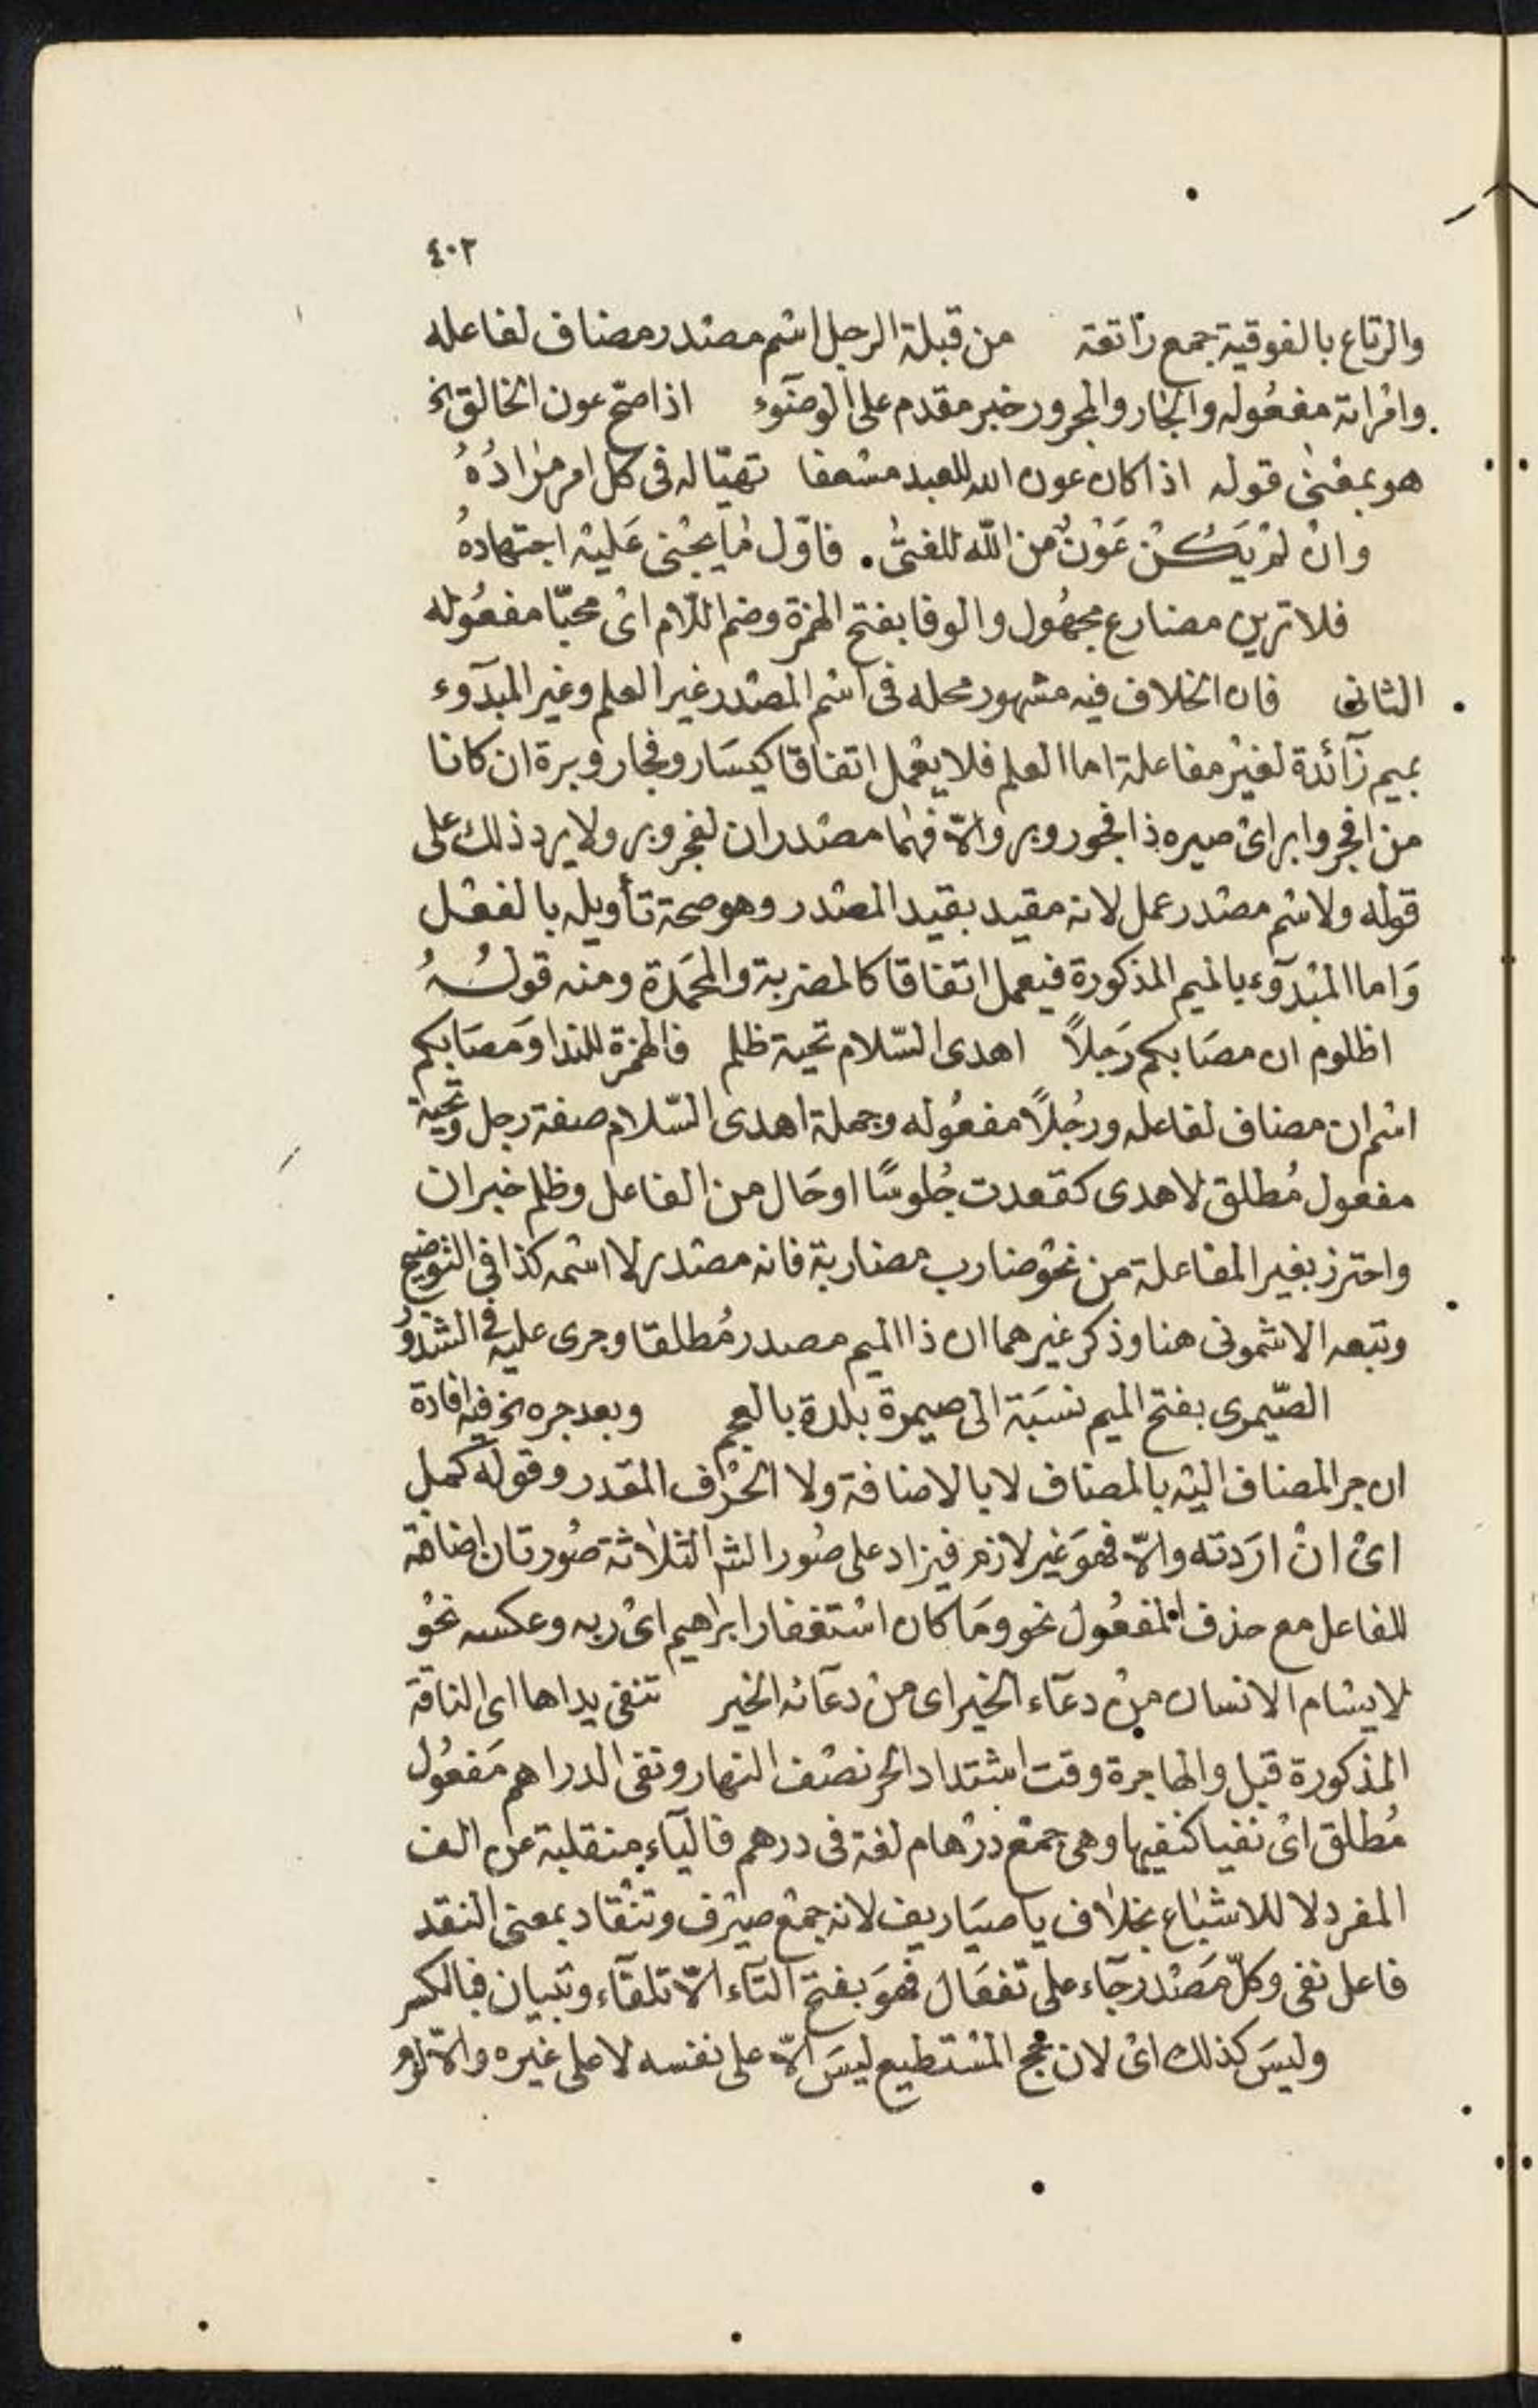 ٤٠٢
والرتاع بالفوقية جمع راتعة من قبلة الرجل اسم مصدر مضاف لفاعله
وامراته مفعوله والجار والمجرور خبر مقدم على الوضوء اذا صح عون الخالق الخ
هو بمعنى قوله اذا كان عون الله للعبد مسعفا تهيّا له فى كل امر مرادُهُ
وانْ لمْ يَكُنْ عَوْنٌ من اللّه للفتى. فاوّل مَا يجْنى عَليْه اجتهادهُ
فلا ترين مضارع مجهُول والوفا بفتح الهمزة وضم اللّام اىْ محبّا مفعُوله
الثانى فان الخلاف فيه مشهور محله فى اسْم المصْدر غير العلم وغير المبدوء
بميم زآئدة لغيْر مفاعلة اما العلم فلا يعْمل اتفاقا كيسَار وفجار وبرة ان كانا
من افجر وابر اىْ صيره ذا فجور وبر والاّ فهمَا مصْدران لفجر وبر ولا يرد ذلك على
قوله ولاسْم مصْدر عمل لانه مقيد بقيد المصْدر وهو صحة تأويله بالفعْل
وَاما المبْدوء بالميم المذكورة فيعمل اتفاقا كالمضربة والمحمَدة ومنه قولهُ
اظلوم ان مصَابكم رَجلاً اهدى السّلام تحية ظلم فالهمزة للندا وَمصَابكم
اسْم ان مضاف لفاعله ورجُلاً مفعُوله وجملة اهدى السّلام صفة رجل وتحية
مفعول مُطلق لاهدى كقعدت جُلوسًا اوحَال من الفاعل وظلم خبر ان
واحترز بغير المفاعلة من نحْو ضارب مضاربة فانه مصْدر لا اسْمه كذا فى التوضيح
وتبعه الاشمونى هنا وذكر غيرهما ان ذا الميم مصدر مُطلقا وجرى عليه فى الشذو
الصّيمرى بفتح الميم نسَبَة الى صيمرة بلدة بالعجم وبعد جره الخ فيه افادة
ان جر المضاف اليْه بالمضاف لا بالاضافة ولا الحَرْف المقدر وقوله كمل
اىْ انْ ارَدته والاّ فهوَ غير لازم فيزاد على صُور الشم الثلاثة صُورتان اضافته
للفاعل مع حذف المفعُول نحو ومَا كان اسْتغفار ابراهيم اىْ ربه وعكسه نحْو
لا يسْام الانسان مِنْ دعآء الخير اى منْ دعآئه الخير تنفى يداها اى الناقة
المذكورة قبل والهاجرة وقت اشْتداد الحر نصْف النهار ونفى الدراهم مَفعُول
مُطلق اىْ نفيا كنفيها وهى جمْع درْهام لغة فى درهم فاليآء منقلبة عن الف
المفرد لا للاشْبَاع بخلاف يا صيَاريف لانه جمْع صيْرف وتنْقاد بمعنى النقد
فاعل نفى وكلّ مَصْدر جآء على تفعَال فهوَ بفتح التآء الاّ تلقآء وتبيان فبالكسر
وليسَ كذلك اىْ لان حج المسْتطيع ليسَ الاّ على نفسه لا على غيره والاّ لزم